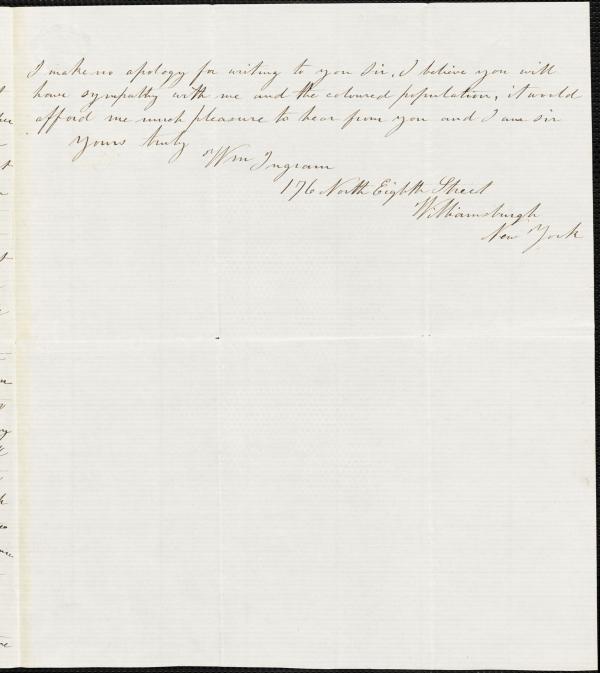 I make no apology for writing to you Sir, I believe you will
have sympathy with me and the coloured population, it would
afford me much pleasure to hear from you and I am sir
yours truly
Wm Ingram
176 North Eighth Street
Williamsburgh
New York